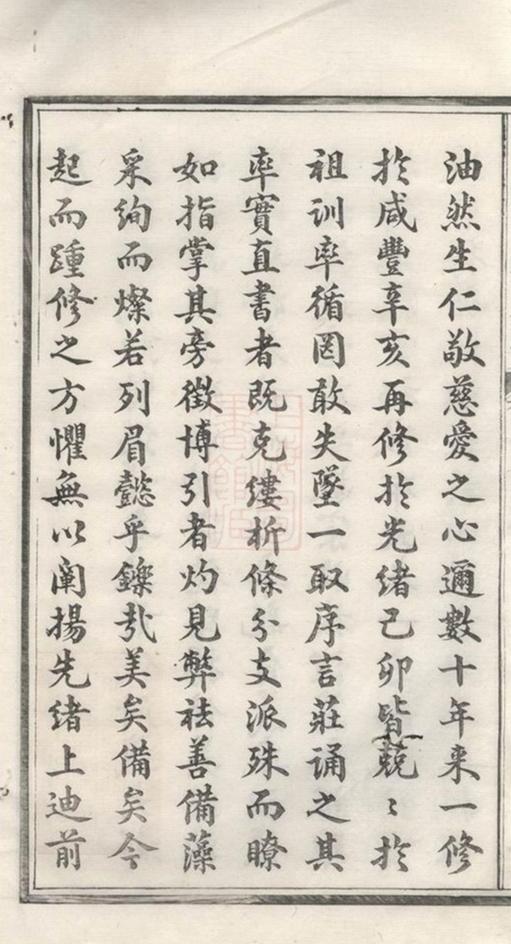 油然生仁敬慈愛之心邇數十年来一修
扵咸豐辛亥再修扵光緒己卯皆兢〻扵
祖训率循罔敢失墜一取序言莊诵之其
率實直書者既克縷析條分支派殊而瞭
如指掌其旁徵博引者灼見弊祛善備藻
采絢而燦若列眉懿乎鑠㦲美矣備矣今
起而踵修之方懼無以闡揚先緒上迪前